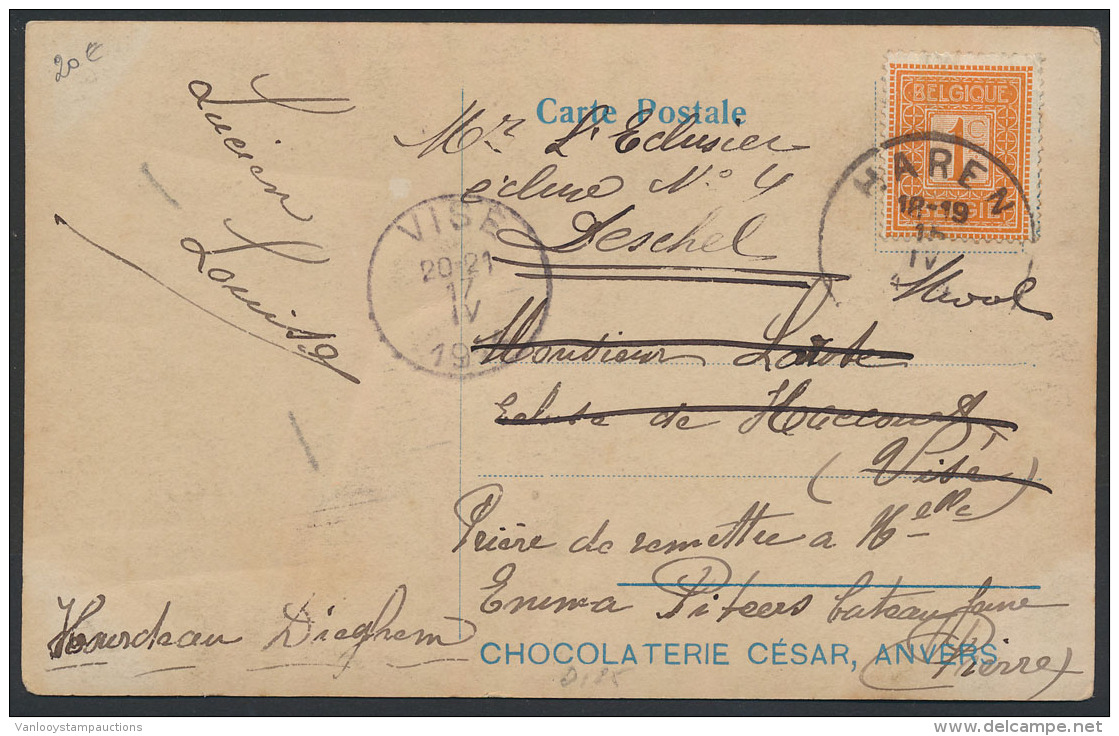 20 €
Carte Postale
BELGIQUE
1C
HAREN
18-19
15
IV
Lucien
Louis
Mr L'Eclusier
écluse No 4
Desschel
Mool
VISÉ
20-21
17
IV
191
Monsieur
Ecluse de Haccourt
(Visé)
Prière de remettre a Melle
Emma Piteers bateau
(Pierre)
Dieghem
CHOCOLATERIE CÉSAR, ANVERS
Vanlooystampauctions
www.delcampe.net